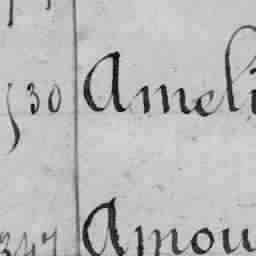 530 Ameli
347 Amou